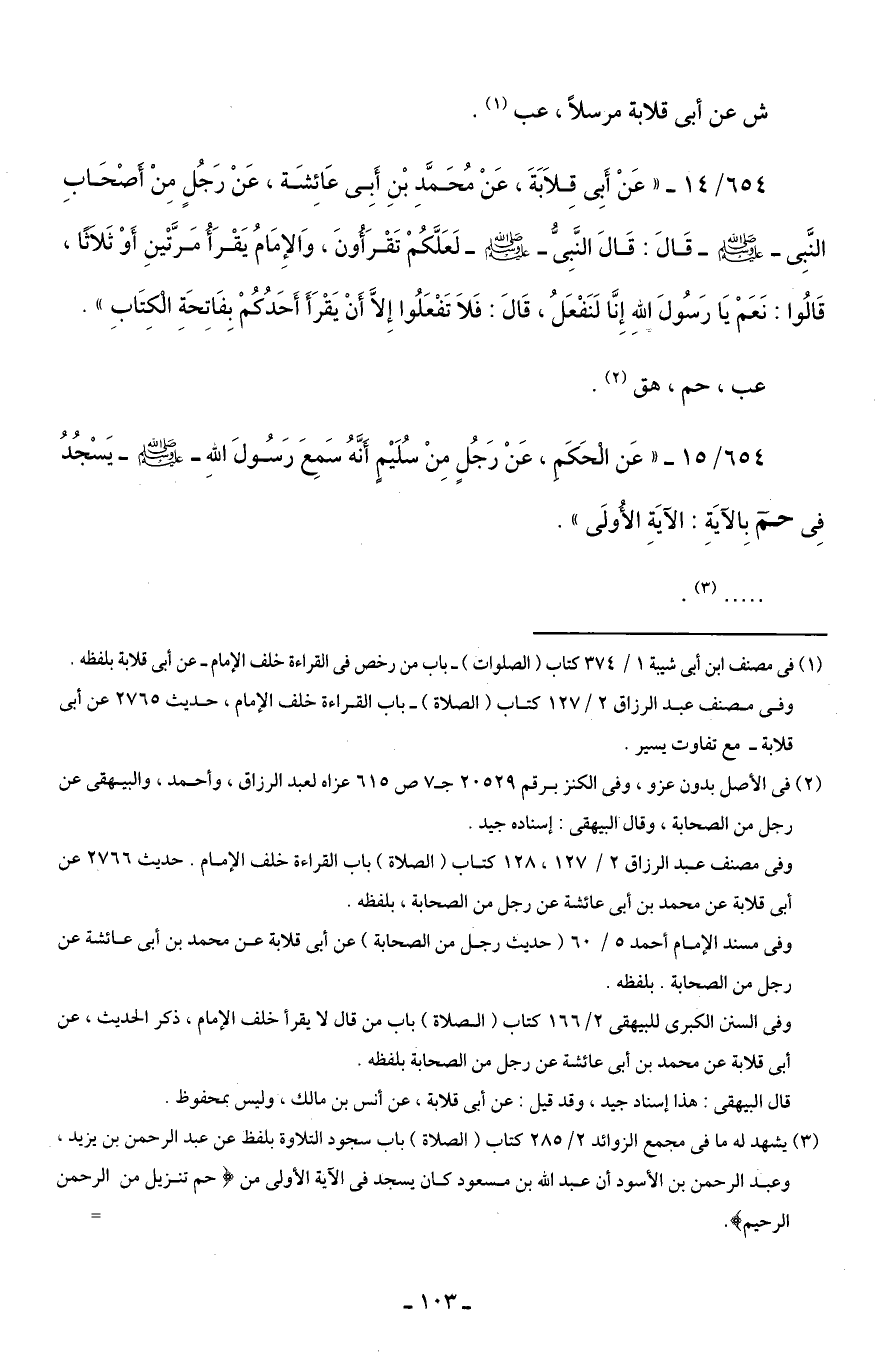 ش عن أبى قلابة مرسلاً ، عب (١) .
٦٥٤/ ١٤ ـ « عَنْ أَبِى قِلاَبَةَ ، عَنْ مُحَمَّدِ بْنِ أَبِى عَائِشَة ، عَنْ رَجُلٍ مِنْ أَصْحَابِ
النَّبِى ـ ﷺ ـ قَالَ : قَالَ النَّبِىُّ ـ ﷺ ـ لَعَلَّكُمْ تَقْرَأُونَ ، وَالإِمَامُ يَقْرَأُ مَرَّتَّينِ أَوْ ثَلاَثًا ،
قَالُوا : نَعَمْ يَا رَسُولَ اللهِ إِنَّا لَنَفْعَلُ ، قَالَ : فَلاَ تَفْعَلُوا إِلاَّ أَنْ يَقْرَأَ أَحَدُكُمْ بِفَاتِحَةِ الْكِتَابِ » .
عب ، حم ، هق (٢) .
٦٥٤/ ١٥ ـ « عَنِ الْحَكَمِ ، عَنْ رَجُلٍ مِنْ سُلَيْمٍ أَنَّهُ سَمِعَ رَسُولَ اللهِ ـ ﷺ ـ يَسْجُدُ
فِى حمٓ بِالآيَةِ : الآيَةِ الأُولَى » .
..... (٣) .
(١) فى مصنف ابن أبى شيبة ١ / ٣٧٤ كتاب ( الصلوات ) ـ باب من رخص فى القراءة خلف الإمام ـ عن أبى قلابة بلفظه .
وفى مصنف عبد الرزاق ٢ / ١٢٧ كتاب ( الصلاة ) ـ باب القراءة خلف الإمام ، حديث ٢٧٦٥ عن أبى
قلابة ـ مع تفاوت يسير .
(٢) فى الأصل بدون عزو ، وفى الكنز برقم ٢٠٥٢٩ جـ٧ ص ٦١٥ عزاه لعبد الرزاق ، وأحمد ، والبيهقى عن
رجل من الصحابة ، وقال البيهقى : إسناده جيد .
وفى مصنف عبد الرزاق ٢ / ١٢٧ ، ١٢٨ كتاب ( الصلاة ) باب القراءة خلف الإمام . حديث ٢٧٦٦ عن
أبى قلابة عن محمد بن أبى عائشة عن رجل من الصحابة ، بلفظه .
وفى مسند الإمام أحمد ٥ / ٦٠ ( حديث رجل من الصحابة ) عن أبى قلابة عن محمد بن أبى عائشة عن
رجل من الصحابة . بلفظه .
وفى السنن الكبرى للبيهقى ٢/ ١٦٦ كتاب ( الصلاة ) باب من قال لا يقرأ خلف الإمام ، ذكر الحديث ، عن
أبى قلابة عن محمد بن أبى عائشة عن رجل من الصحابة بلفظه .
قال البيهقى : هذا إسناد جيد ، وقد قيل : عن أبى قلابة ، عن أنس بن مالك ، وليس بمحفوظ .
(٣) يشهد له ما فى مجمع الزوائد ٢/ ٢٨٥ كتاب ( الصلاة ) باب سجود التلاوة بلفظ عن عبد الرحمن بن يزيد ،
وعبد الرحمن بن الأسود أن عبد الله بن مسعود كان يسجد فى الآية الأولى من ﴿ حم تنزيل من الرحمن
الرحيم﴾. =
ـ ١٠٣ ـ